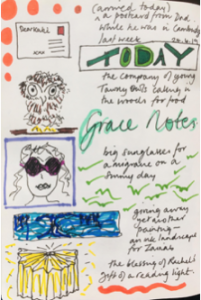 (arrived today)
a postcard from Dad
while he was in
last week
TODAY
the company of young
Tawny Owls calling in
the woods for food
Grace Notes
big sunglasses for
a migraine on a
sunny day
giving away
yet another
painting -
landscape
for
the blessing of Rachel's
gift of a reading light.